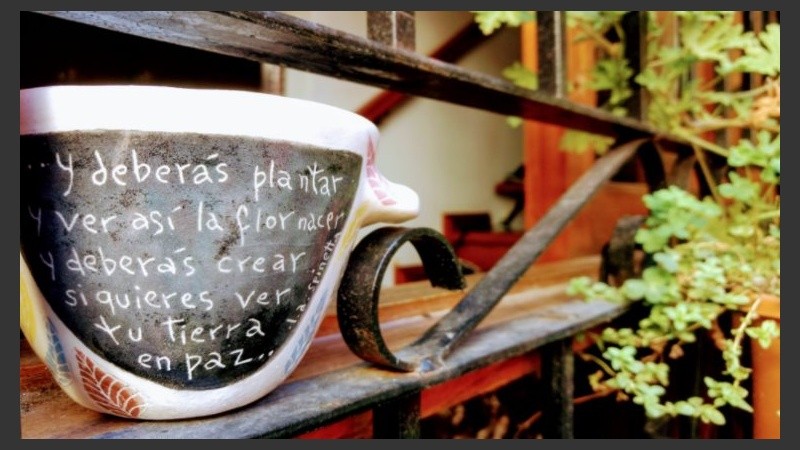 ...y deberás plantar
y ver así la flor nacer
y deberás crear
si quieres ver
tu tierra
en paz...
L.A. Spinetta